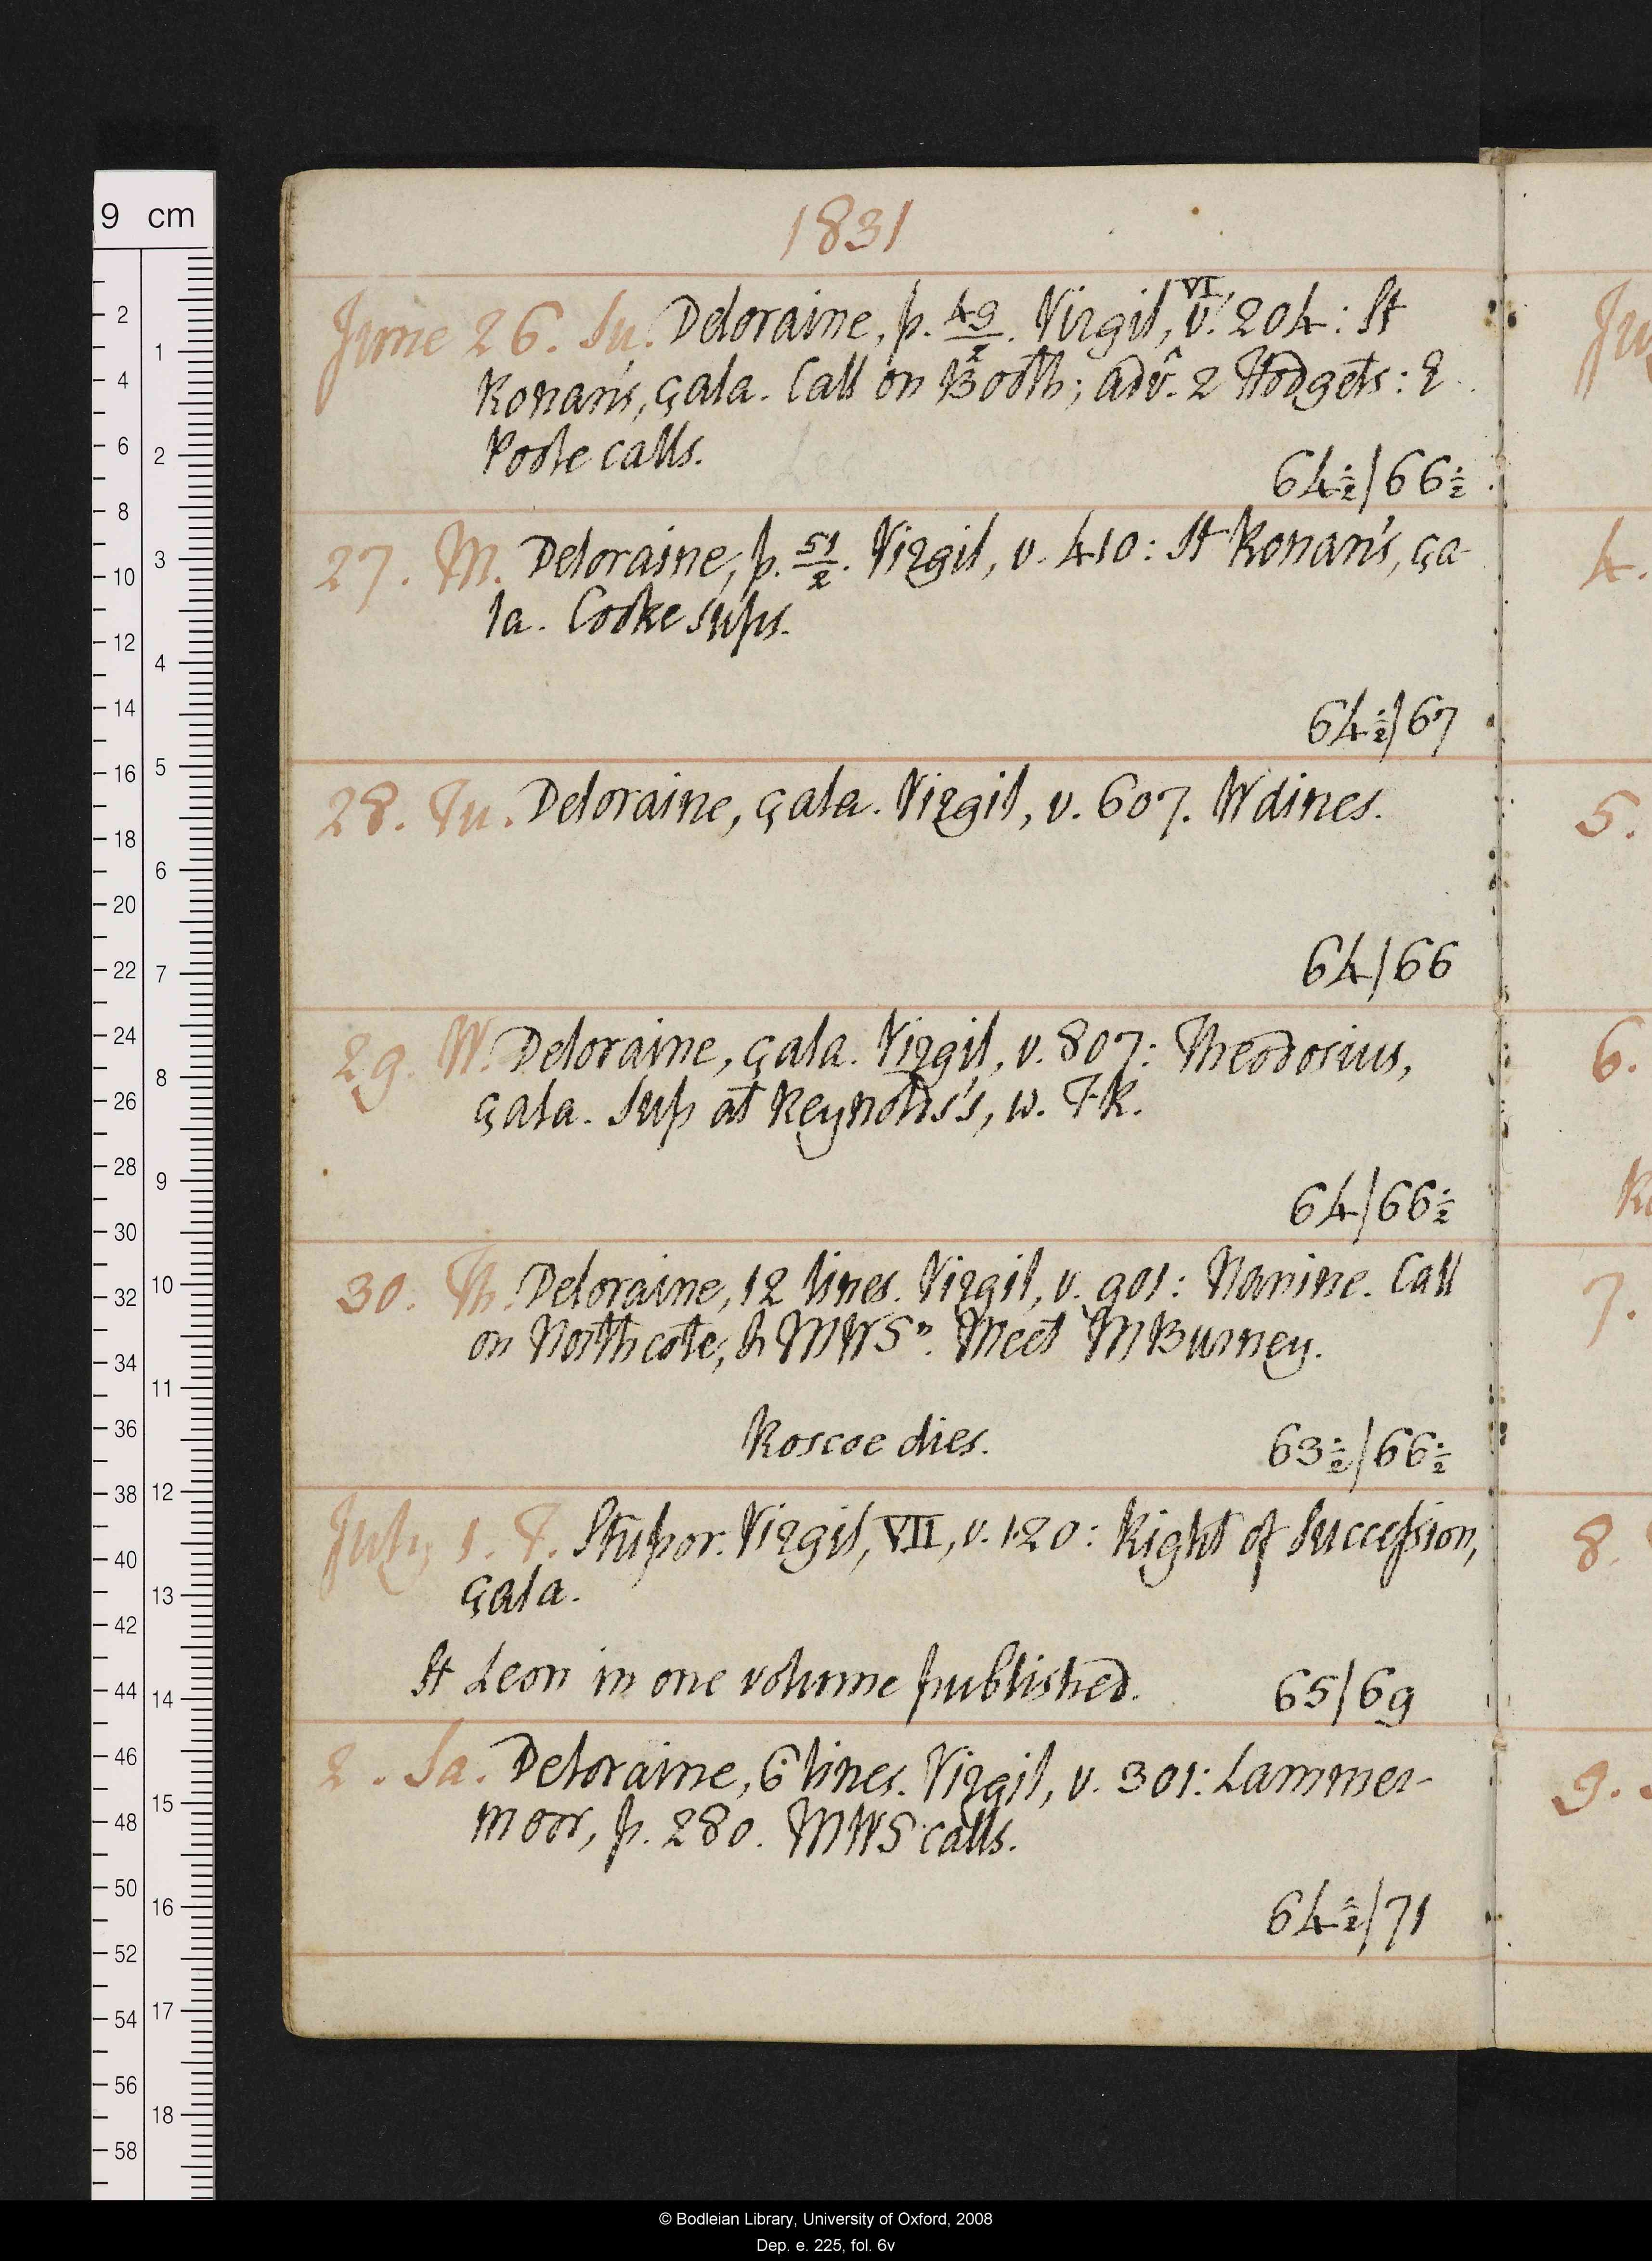 1831
June 26. Su. Deloraine, p. 49/2. Virgil, VI, v. 204: St
Ronan's, çala. Call on Booth; adv. 2 Hodgets: E
Poole calls.
64½/66½
27. M. Deloraine, p. 51/2. Virgil, v. 410: St Ronan's, ça-
la. Cooke sups.
64½/67
28. Tu. Deloraine, çala. Virgil, v. 607. W dines.
64/66
29. W. Deloraine, çala. Virgil, v. 807: Theodosius,
çala. Sup at Reynolds's, w. FK.
64/66½
30. Th. Deloraine, 12 lines. Virgil, v. 901: Nanine. Call
on Northcote, & MWSn. Meet MBurney.
Roscoe dies.
63½/66½
July 1. F. Stupor. Virgil, VII, v. 120: Right of Succession,
çala.
St Leon in one volume published.
65/69
2. Sa. Deloraine, 6 lines. Virgil, v. 301: Lammer-
moor, p. 280. MWS calls.
64½/71
Ju
4.
5.
6.
7.
8.
9.
9 cm
2 4 6 8 10 12 14 16 18 20 22 24 26 28 30 32 34 36 38 40 42 44 46 48 50 52 54 56 58
1 2 3 4 5 6 7 8 9 10 11 12 13 14 15 16 17 18
© Bodleian Library, University of Oxford, 2008
Dep. e. 225, fol. 6v